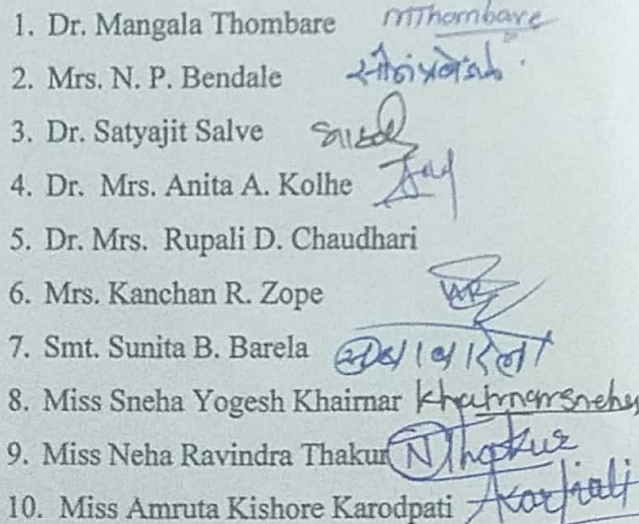 1. Dr. Mangala Thombare MThombare
2. Mrs. N. P. Bendale
3. Dr. Satyajit Salve
4. Dr. Mrs. Anita A. Kolhe
5. Dr. Mrs. Rupali D. Chaudhari
6. Mrs. Kanchan R. Zope
7. Smt. Sunita B. Barela
8. Miss Sneha Yogesh Khairnar Khairnarsneha
9. Miss Neha Ravindra Thakur NThakur
10. Miss Amruta Kishore Karodpati